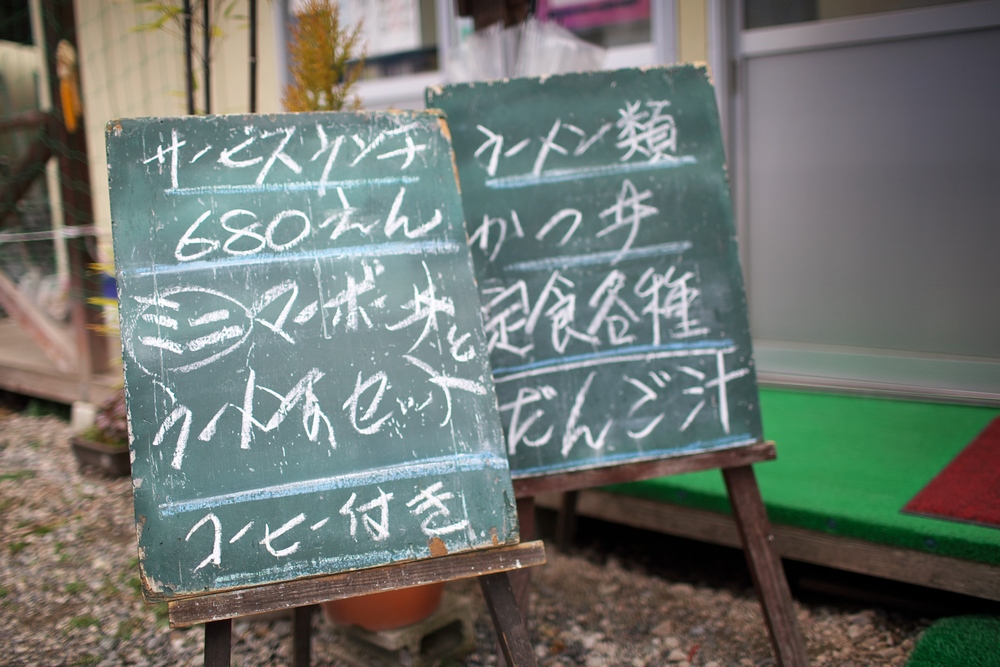 サービスランチ
680えん
ミニ マーボー丼と
ラーメンセット
コーヒー付き
ラーメン類
かつ丼
定食各種
だんご汁